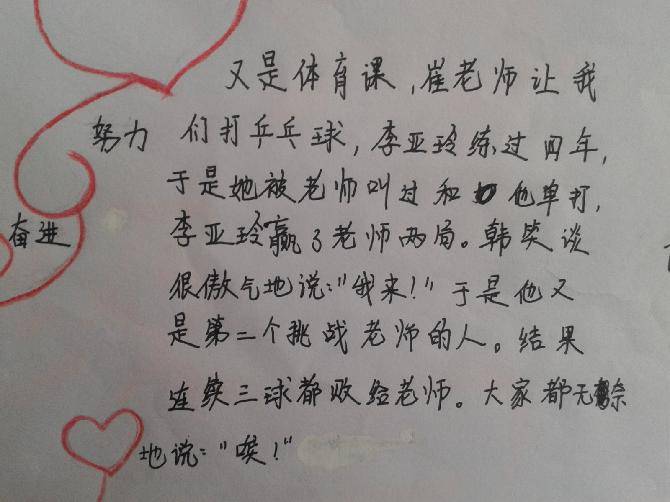 又是体育课,崔老师让我
努力 们打乒乓球,李亚玲练过四年,
于是她被老师叫过和他单打,
奋进 李亚玲赢了老师两局。韩笑谈
很傲气地说:"我来!"于是他又
是第二个挑战老师的人。结果
连续三球都败给老师。大家都无奈
地说:"唉!"